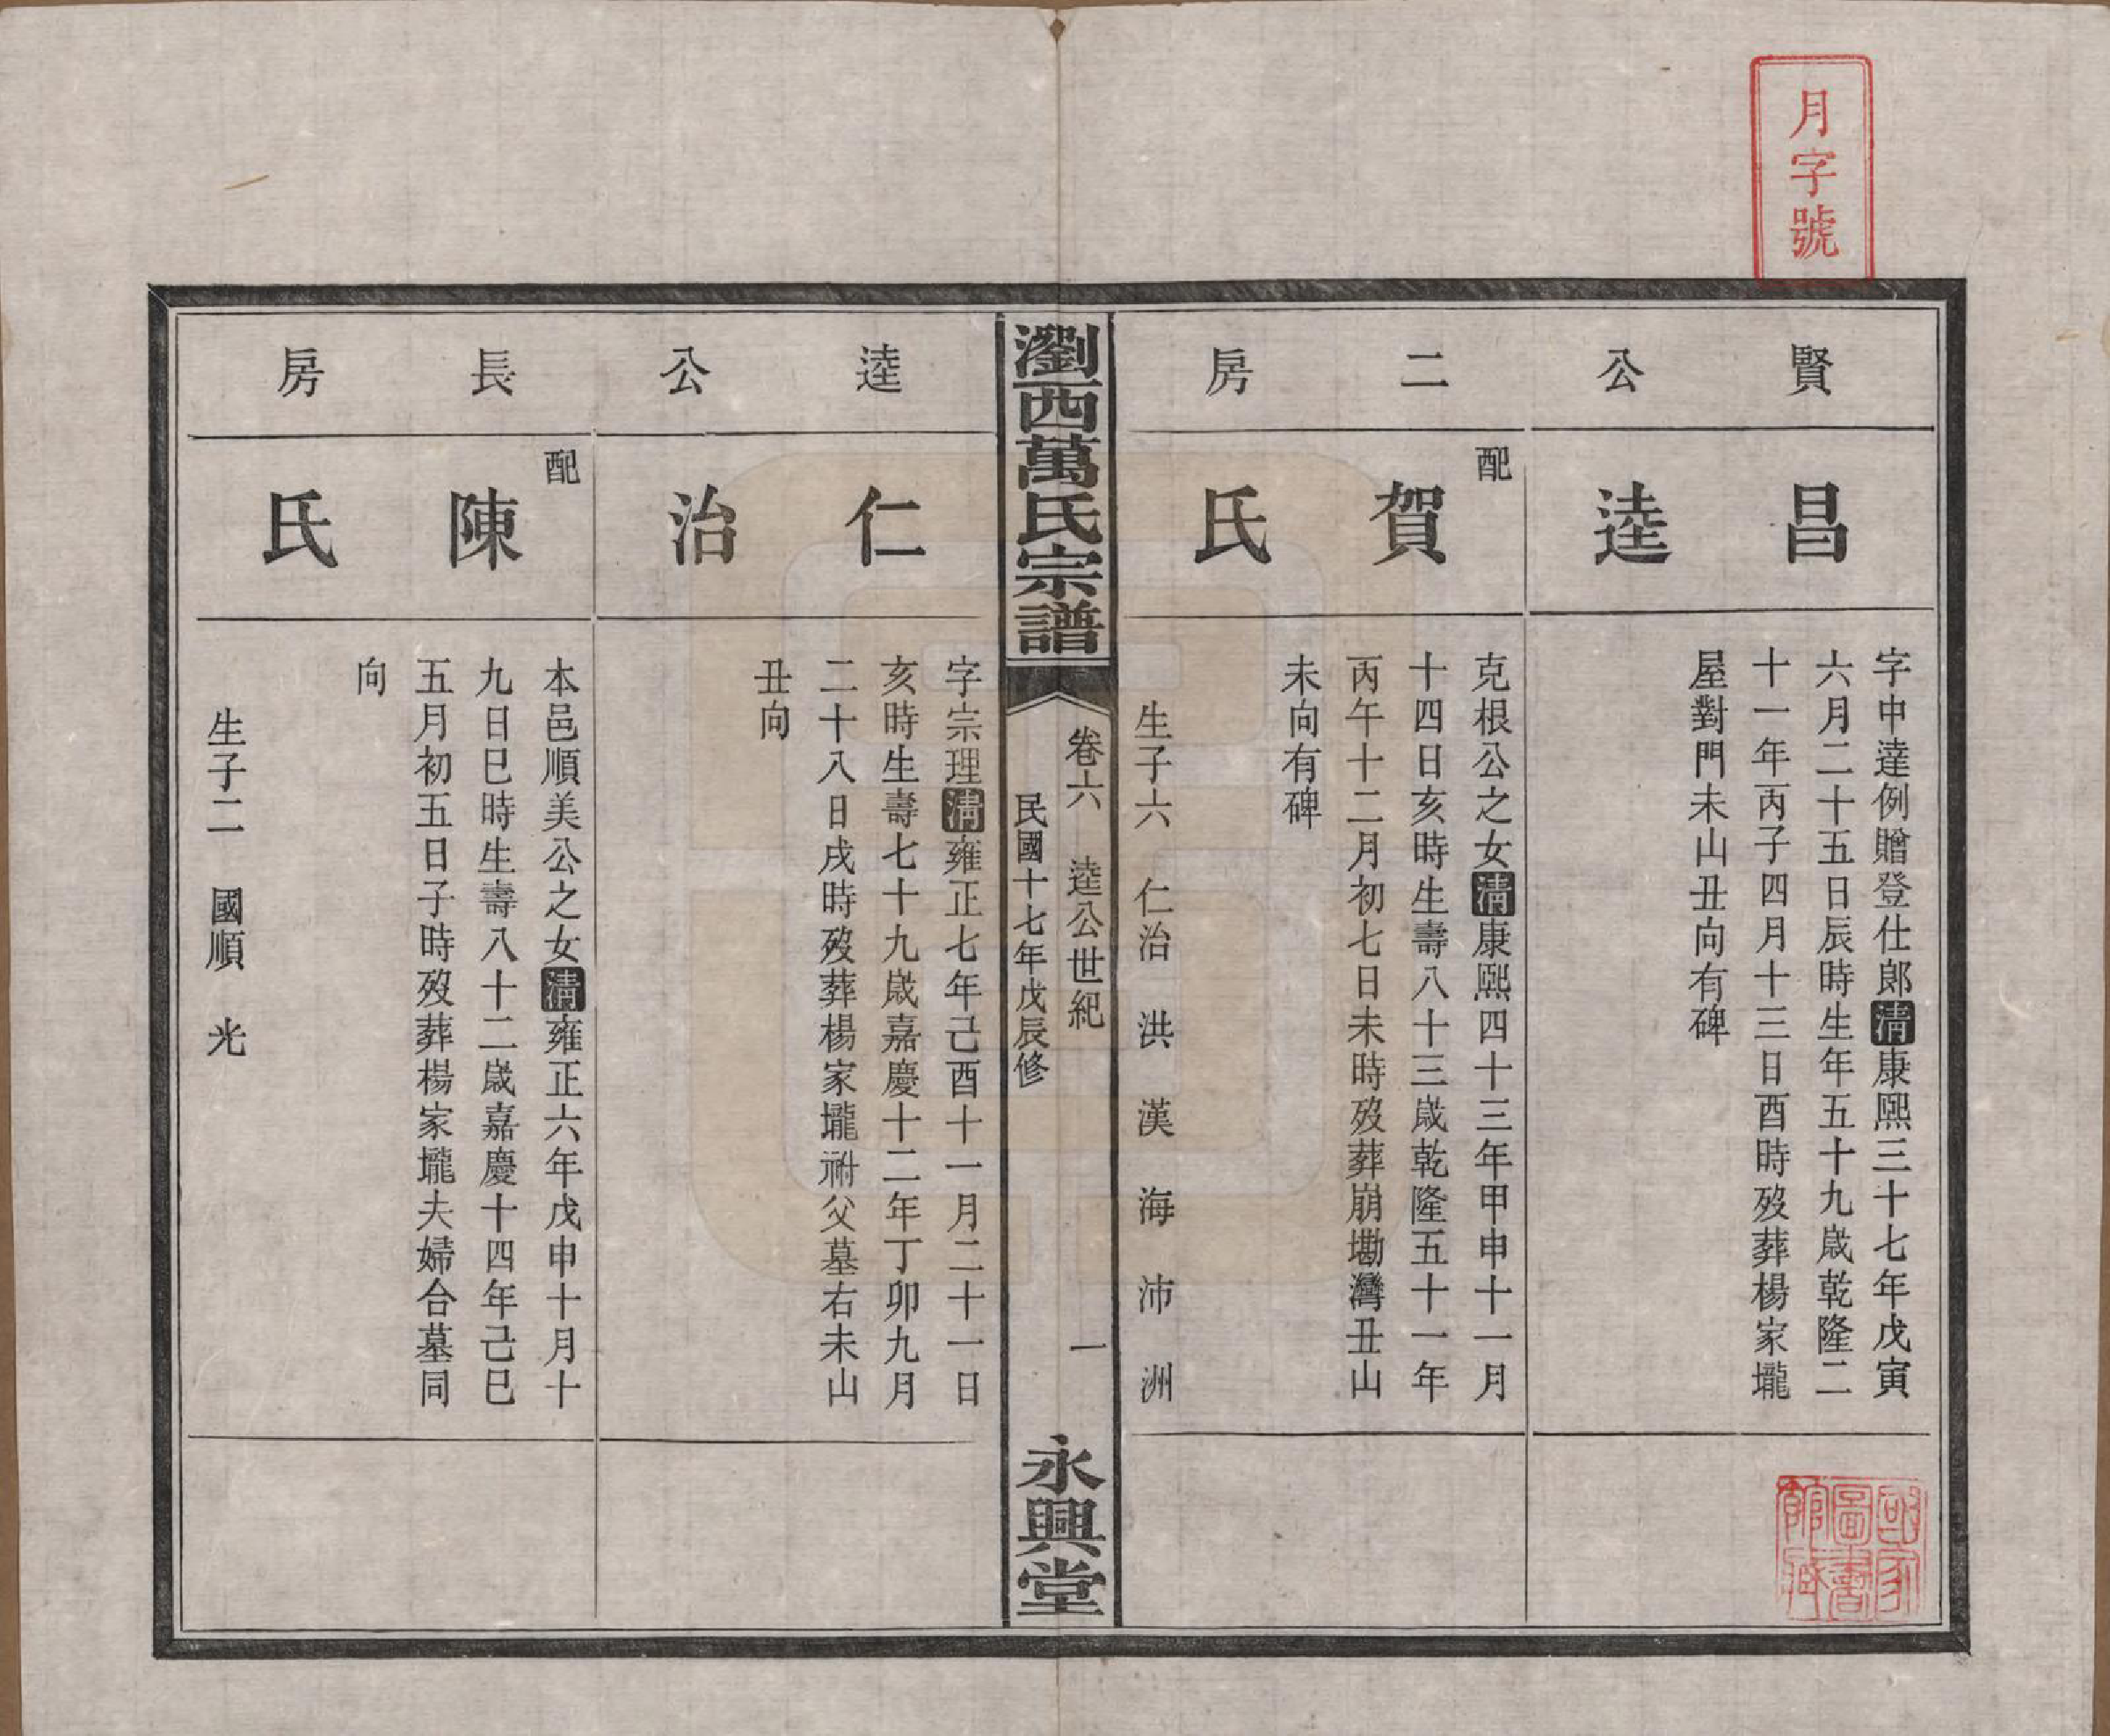 月字號
賢公二房
昌逵
字申達例贈登仕郎清康熙三十七年戊寅
六月二十五日辰時生年五十九歲乾隆二
十一年丙子四月十三日酉時歿葬楊家壠
屋對門未山丑向有碑
配
賀氏
克根公之女清康熙四十三年甲申十一月
十四日亥時生壽八十三歲乾隆五十一年
丙午十二月初七日未時歿葬崩墈灣丑山
未向有碑
生子六 仁治 洪 漢 海 沛 洲
瀏西萬氏宗譜
卷六 逵公世紀 一
民國十七年戊辰修
永興堂
逵公長房
仁治
字宗理清雍正七年己酉十一月二十一日
亥時生壽七十九歲嘉慶十二年丁卯九月
二十八日戌時歿葬楊家壠祔父墓右未山
丑向
配
陳氏
本邑順美公之女清雍正六年戊申十月十
九日巳時生壽八十二歲嘉慶十四年己巳
五月初五日子時歿葬楊家壠夫婦合墓同
向
生子二 國順 光
國家圖書館藏